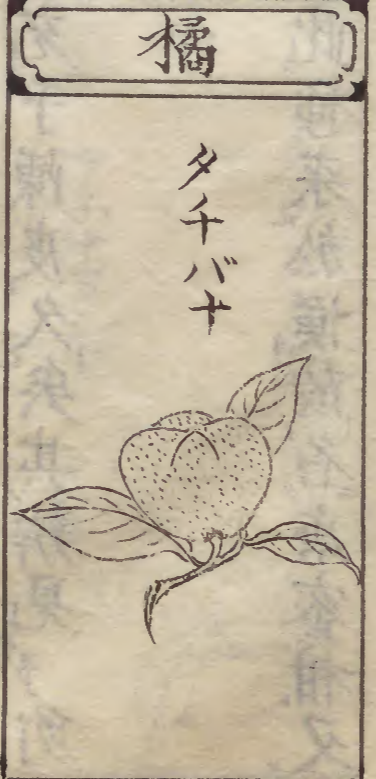 橘
タチバナ